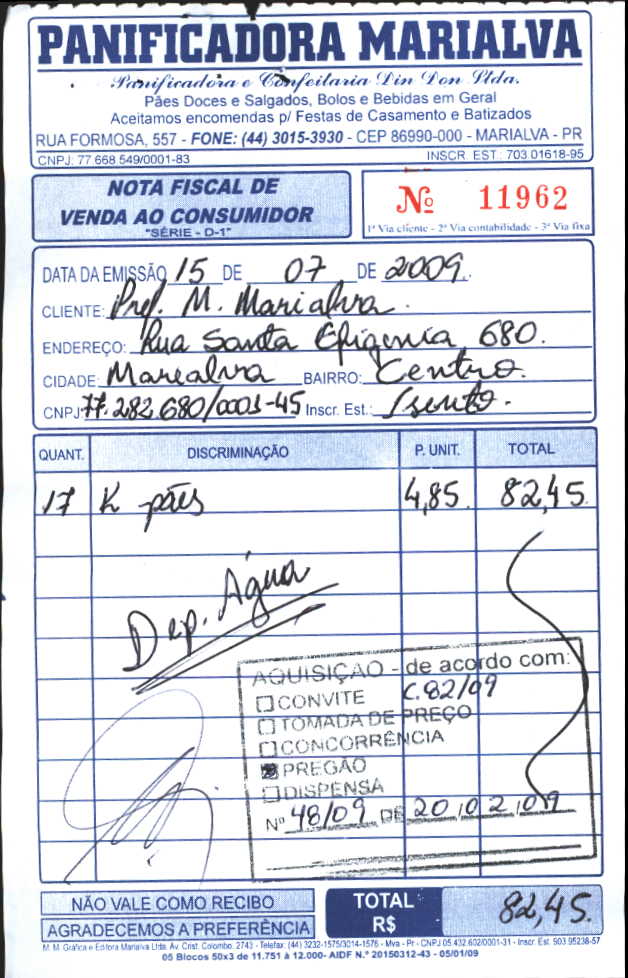 PANIFICADORA MARIALVA
Panificadora e Confeitaria Din Don Ltda.
Pães Doces e Salgados, Bolos e Bebidas em Geral
Aceitamos encomendas p/ Festas de Casamento e Batizados
RUA FORMOSA, 557 - FONE: (44) 3015-3930 - CEP 86990-000 - MARIALVA - PR
CNPJ: 77.668.549/0001-83 INSCR. EST.: 703.01618-95
NOTA FISCAL DE
VENDA AO CONSUMIDOR
"SÉRIE - D-1"
Nº 11962
1ª Via cliente - 2ª Via contabilidade - 3ª Via fixa
DATA DA EMISSÃO 15 DE 07 DE 2009.
CLIENTE: Pref. M. Marialva.
ENDEREÇO: Rua Santa Efigenia, 680.
CIDADE: Marialva BAIRRO: Centro.
CNPJ: 77.282.680/0001-45 Inscr. Est.: Isento.
QUANT. DISCRIMINAÇÃO P. UNIT. TOTAL
17 K pães 4,85 82,45.
Dep. Água
AQUISIÇÃO - de acordo com:
C.82/09
CONVITE
TOMADA DE PREÇO
CONCORRÊNCIA
PREGÃO
DISPENSA
Nº 48/09 DE 20/02/09
NÃO VALE COMO RECIBO
AGRADECEMOS A PREFERÊNCIA
TOTAL R$ 82,45.
M. M. Gráfica e Editora Marialva Ltda. Av. Crist. Colombo, 2743 - Telefax: (44) 3232-1575/3014-1576 - Mva - Pr - CNPJ 05.432.602/0001-31 - Inscr. Est. 903.95238-57
05 Blocos 50x3 de 11.751 à 12.000- AIDF N.º 20150312-43 - 05/01/09